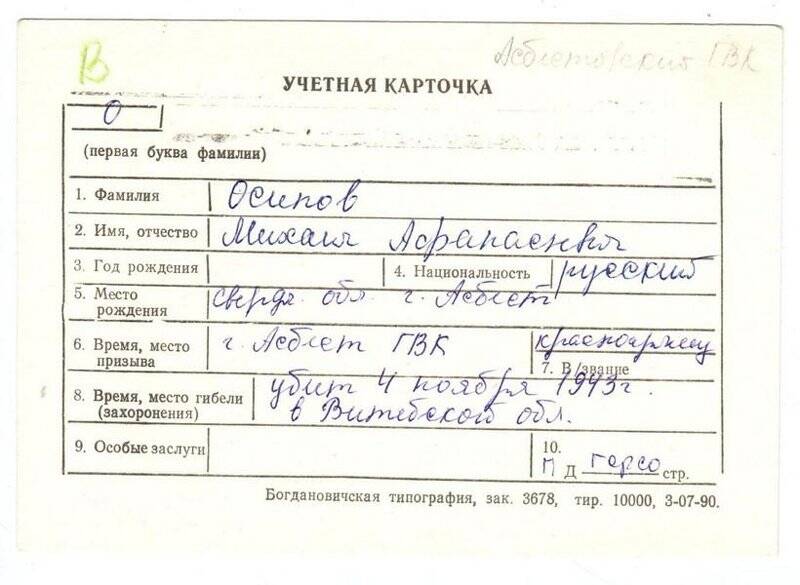 В
Асбестовский ГВК
УЧЕТНАЯ КАРТОЧКА
О
(первая буква фамилии)
1. Фамилия Осипов
2. Имя, отчество Михаил Афанасьевич
3. Год рождения 4. Национальность русский
5. Место рождения свердл. обл. г. Асбест
6. Время, место призыва г. Асбест ГВК
красноармеец
7. В/звание
8. Время, место гибели (захоронения) убит 4 ноября 1943г.
в Витебской обл.
9. Особые заслуги
10.
П Д герсо стр.
Богдановичская типография, зак. 3678, тир. 10000, 3-07-90.